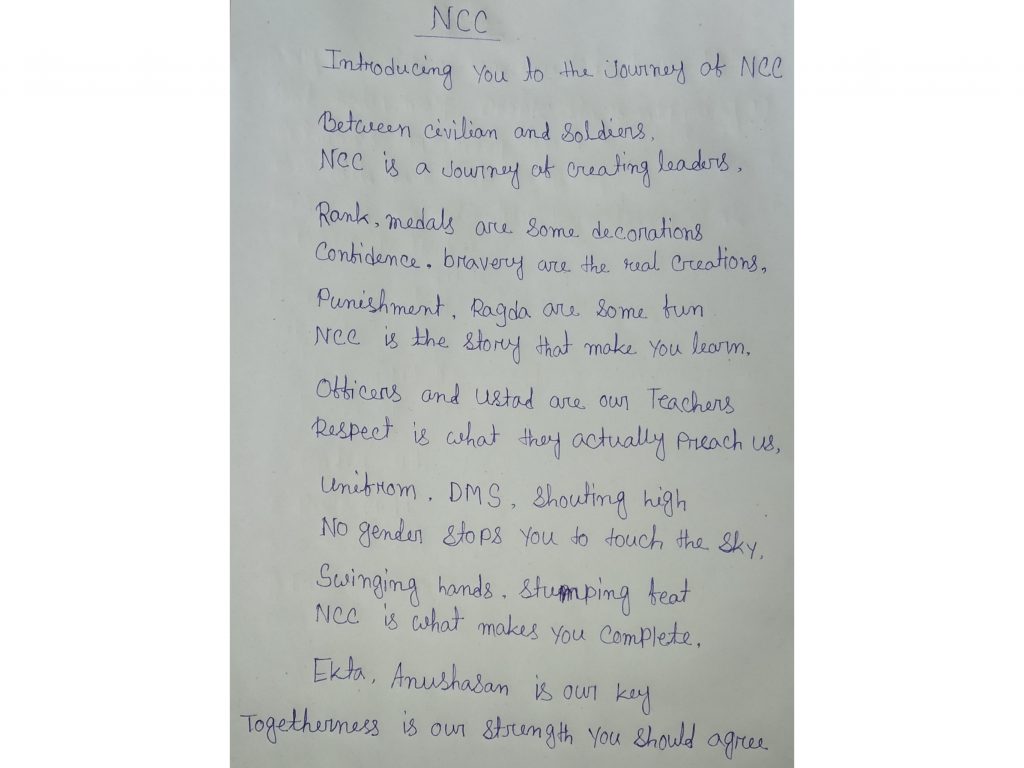 NCC
Introducing you to the Journey of NCC
Between civilian and soldiers,
NCC is a Journey of creating leaders,
Rank, medals are some decorations
Confidence, bravery are the real creations,
Punishment, Ragda are some fun
NCC is the story that make you learn,
Officers and Ustad are our Teachers
Respect is what they actually Preach us,
Unifrom, DMS, Shouting high
No gender stops you to touch the sky,
Swinging hands, stumping feat
NCC is what makes you complete,
Ekta, Anushasan is our key
Togetherness is our strength you should agree